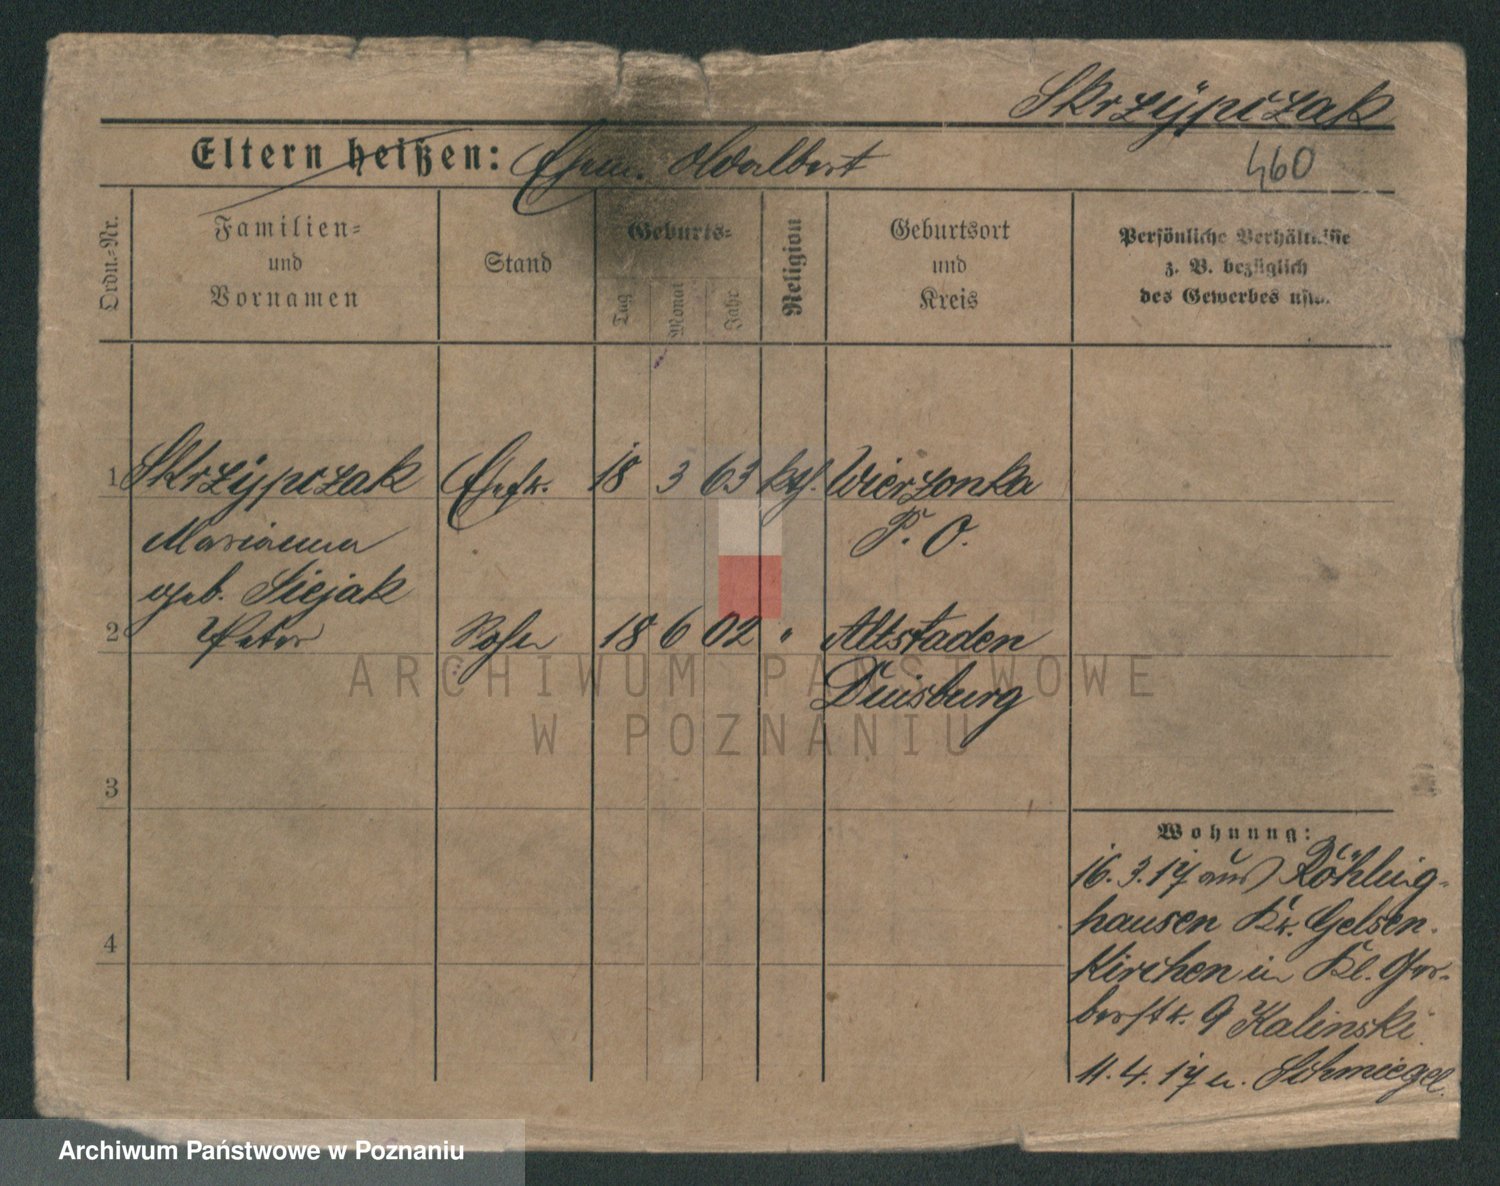 Skrzypczak
Eltern heißen: Ehem. Adalbert
460
Ordn.-Nr.
Familien-
und
Vornamen
Stand
Geburts-
Tag
Monat
Jahr
Religion
Geburtsort
und
Kreis
Persönliche Verhältnisse
z. B. bezüglich
des Gewerbes usw.
1 Skrzypczak Ehefr. 18 3 63 kth. Wierzonka
Marianna P. O.
geb. Siejak
2 Peter Sohn 18 6 02 " Altstaden
Duisburg
3
4
Wohnung:
16.3.17 aus Röhling-
hausen Kr. Gelsen-
kirchen in Kl. Ger-
berstr. 9 Kalinski
11.4.17 n. Schmiegel.
ARCHIWUM PAŃSTWOWE
W POZNANIU
Archiwum Państwowe w Poznaniu